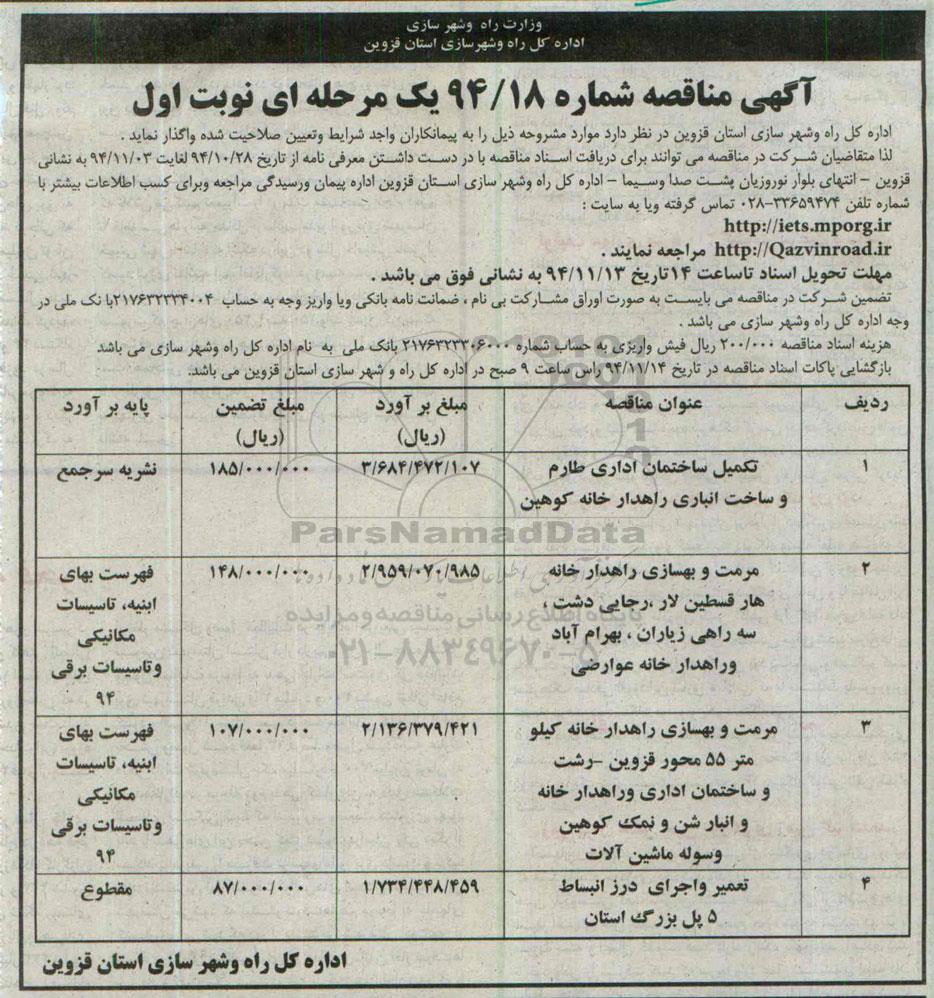 وزارت راه وشهر سازی
اداره کل راه وشهرسازی استان قزوین
آگهی مناقصه شماره ۹۴/۱۸ یک مرحله ای نوبت اول
اداره کل راه وشهر سازی استان قزوین در نظر دارد موارد مشروحه ذیل را به پیمانکاران واجد شرایط وتعیین صلاحیت شده واگذار نماید .
لذا متقاضیان شرکت در مناقصه می توانند برای دریافت اسناد مناقصه با در دست داشتن معرفی نامه از تاریخ ۹۴/۱۰/۲۸ لغایت ۹۴/۱۱/۰۳ به نشانی
قزوین - انتهای بلوار نوروزیان پشت صدا وسیما - اداره کل راه وشهر سازی استان قزوین اداره پیمان ورسیدگی مراجعه وبرای کسب اطلاعات بیشتر با
شماره تلفن ۳۳۶۵۹۴۷۴-۰۲۸ تماس گرفته ویا به سایت :
http://iets.mporg.ir
http://Qazvinroad.ir مراجعه نمایند .
مهلت تحویل اسناد تاساعت ۱۴تاریخ ۹۴/۱۱/۱۳ به نشانی فوق می باشد .
تضمین شرکت در مناقصه می بایست به صورت اوراق مشارکت بی نام ، ضمانت نامه بانکی ویا واریز وجه به حساب ۲۱۷۶۳۲۲۳۴۰۰۴با نک ملی در
وجه اداره کل راه وشهر سازی می باشد .
هزینه اسناد مناقصه ۲۰۰/۰۰۰ ریال فیش واریزی به حساب شماره ۲۱۷۶۳۲۳۳۰۶۰۰۰ بانک ملی به نام اداره کل راه وشهر سازی می باشد
بازگشایی پاکات اسناد مناقصه در تاریخ ۹۴/۱۱/۱۴ راس ساعت ۹ صبح در اداره کل راه و شهر سازی استان قزوین می باشد.
ردیف عنوان مناقصه مبلغ بر آورد (ریال) مبلغ تضمین (ریال) پایه بر آورد
۱ تکمیل ساختمان اداری طارم ۳/۶۸۴/۴۷۲/۱۰۷ ۱۸۵/۰۰۰/۰۰۰ نشریه سرجمع
و ساخت انباری راهدار خانه کوهین
۲ مرمت و بهسازی راهدار خانه ۲/۹۵۹/۰۷۰/۹۸۵ ۱۴۸/۰۰۰/۰۰۰ فهرست بهای
هار قسطین لار ،رجایی دشت ، ابنیه، تاسیسات
سه راهی زیاران ، بهرام آباد مکانیکی
وراهدار خانه عوارضی وتاسیسات برقی
۹۴
۳ مرمت و بهسازی راهدار خانه کیلو ۲/۱۳۶/۳۷۹/۴۲۱ ۱۰۷/۰۰۰/۰۰۰ فهرست بهای
متر ۵۵ محور قزوین -رشت ابنیه، تاسیسات
و ساختمان اداری وراهدار خانه مکانیکی
و انبار شن و نمک کوهین وتاسیسات برقی
وسوله ماشین آلات ۹۴
۴ تعمیر واجرای درز انبساط ۱/۷۳۴/۴۴۸/۴۵۹ ۸۷/۰۰۰/۰۰۰ مقطوع
۵ پل بزرگ استان
اداره کل راه وشهر سازی استان قزوین
ParsNamadData
پایگاه اطلاع رسانی مناقصه و مزایده
۰۲۱-۸۸۳۴۹۶۷۰-۵